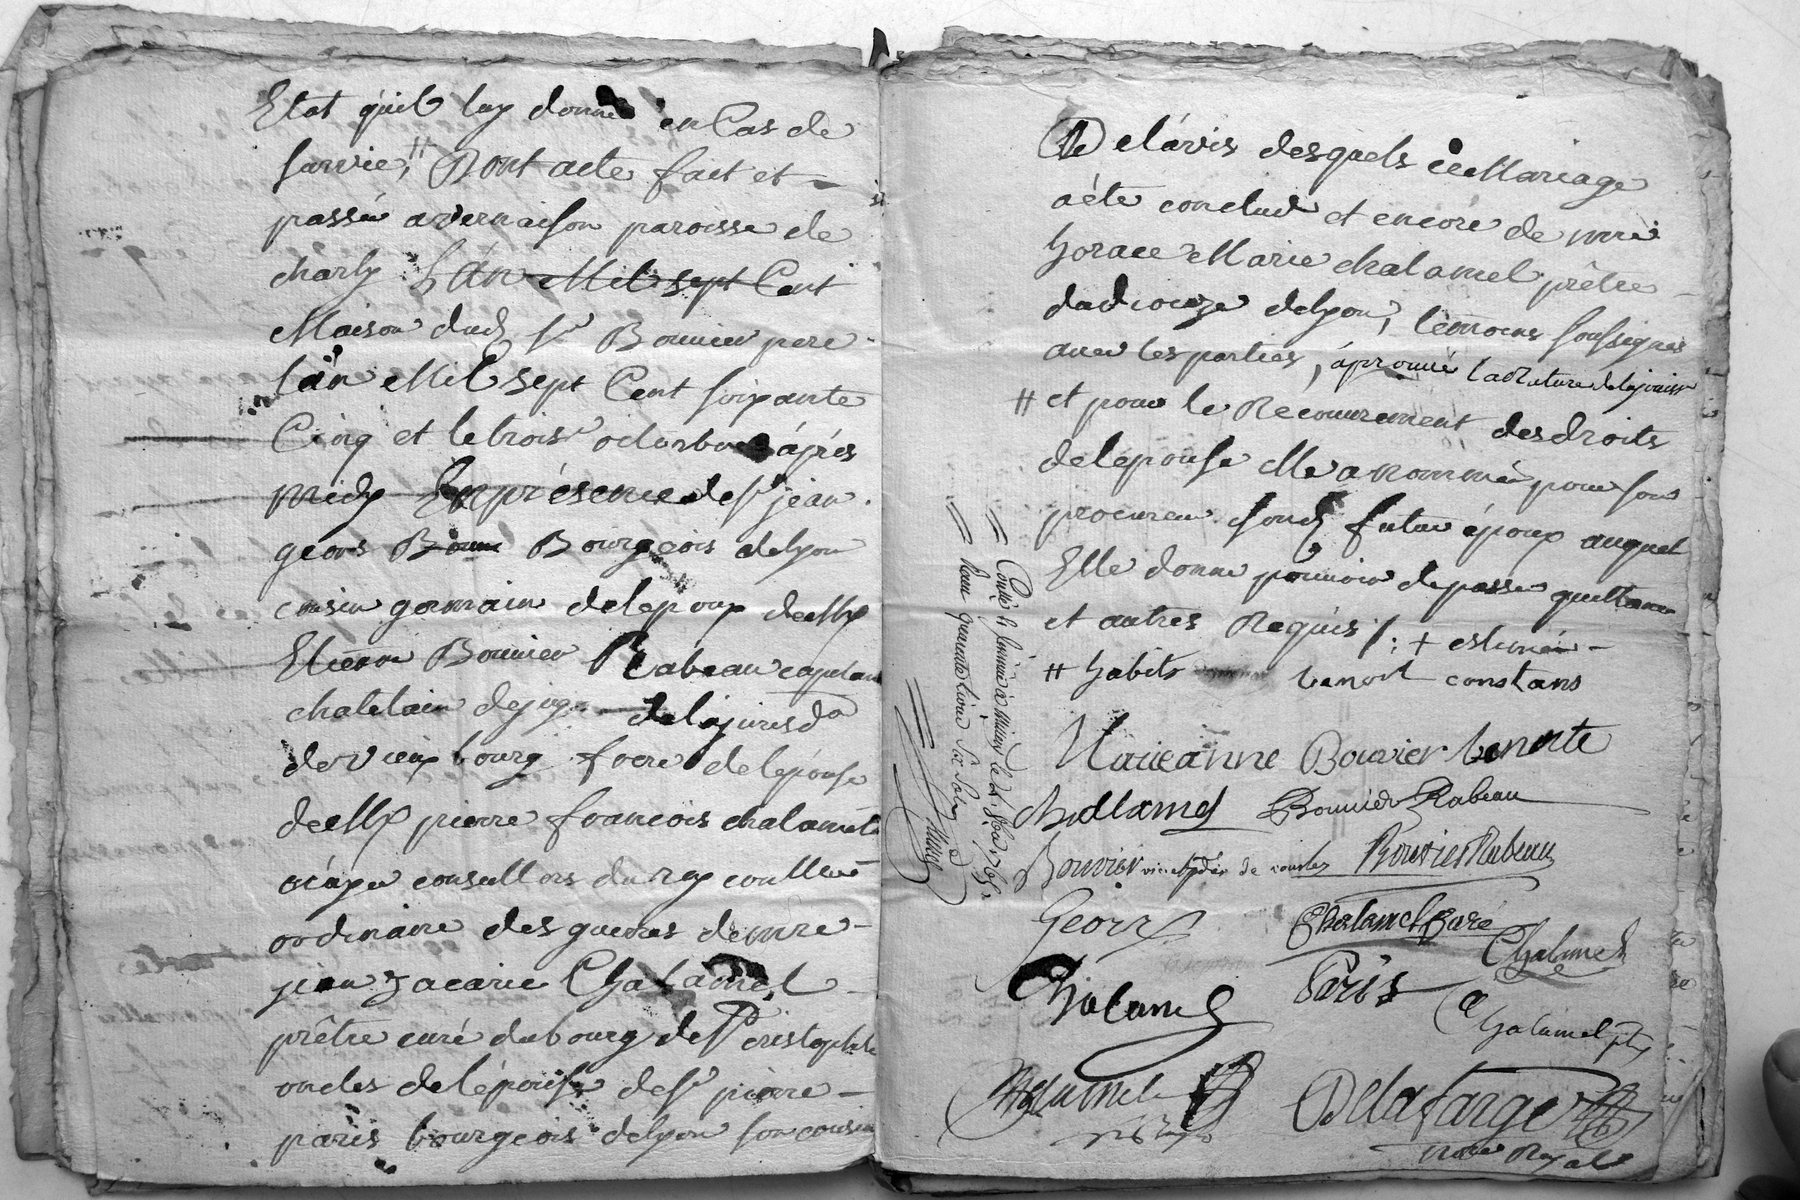 Etat quil luy donne en Cas de
survie, # Dont acte fait et
passé a vernaison paroisse de
charly L'an Mil sept Cent
Maison dud sr Bouvier pere
l'an Mil sept Cent soixante
Cinq et le trois octobre aprés
Midy En présence de sr jean
geors Bouv Bourgeois de lyon
cousin germain de lepoux de Mr
Etienne Bouvier Rabeau capitaine
chatelain de la jurisdon
de vieux bourg frere de lépouse
de Mr pierre francois chalamel
ecuyer conseiller du roy
ordinaire des guerres de mre
jean zacarie Chalamel
prêtre curé du bourg de St cristophle
oncles de lépouse de sr pierre
paris bourgeois de lyon son cousin
De lávis desquels ce Mariage
a été conclud et encore de mre
horace Marie chalamel prêtre
du diocéze de lyon, témoins soussignés
avec les parties, áprouvé la rature
# et pour le Recouvrement des droits
de lepouse elle a nommé pour son
procureur fondé futur époux auquel
Elle donne pouvoir de passer quittance
et autres Requis /: + estimé
# habits benoit constans
Marieanne Bouvier benoite
Chalamel Bouvier Rabeau
Bouvier Bouvier Rabeau
Geors Chalamel Curé
Chalamel
Chalamel Paris
Chalamel ptre
Delafarge
nore Royal
Conté
quarante livres six sols